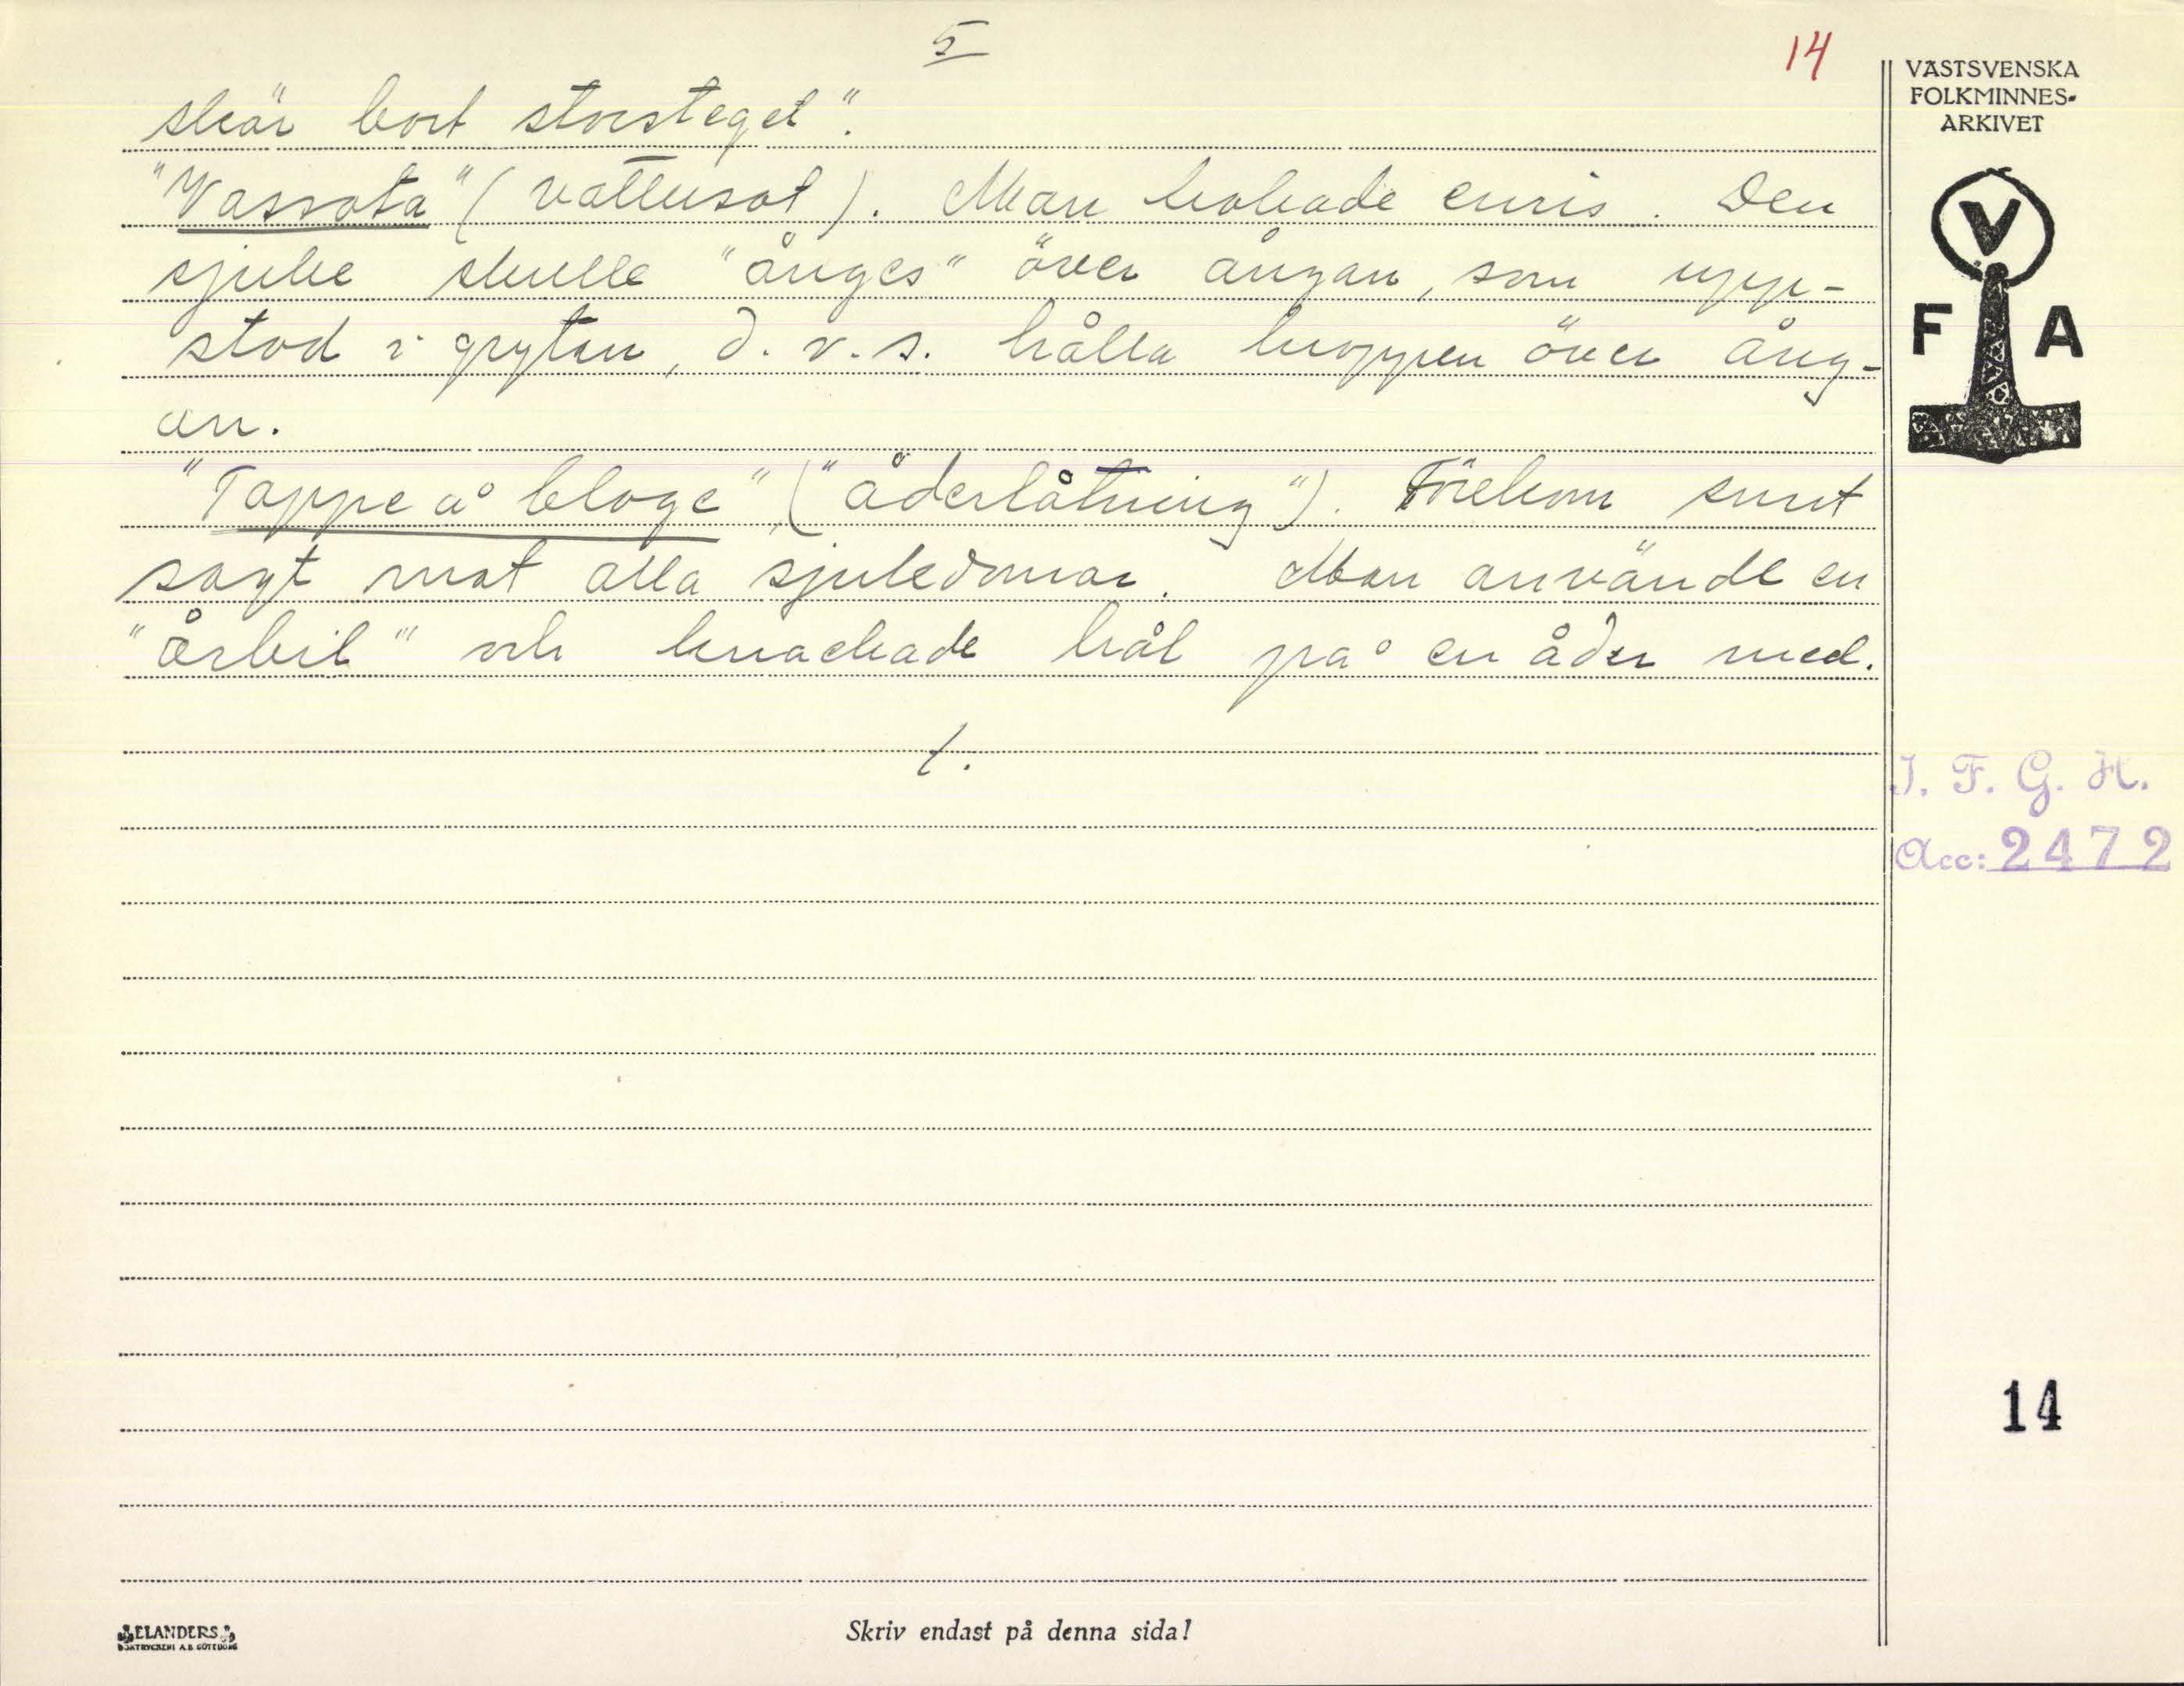 5
14
skär bort storsteget".
"Vassota" (vattusot). Man kokade enris. Den
sjuke skulle "ånges" över ångan, som upp-
stod i grytan, d. v. s. hålla kroppen över ång-
an.
"Tappe å bloge", ("åderlåtning"). Förekom snart
sagt mot alla sjukdomar. Man använde en
"årbil" och knackade hål på en åder med.
/.
VÄSTSVENSKA
FOLKMINNES-
ARKIVET
V
F A
I. F. G. H.
Acc: 2472
14
ELANDERS
BOKTRYCKERI A.B. GÖTEBORG
Skriv endast på denna sida!